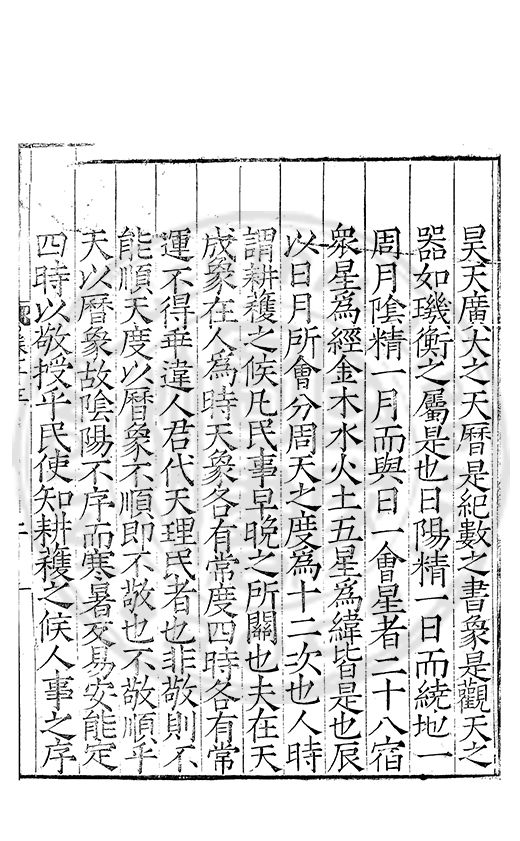 昊天廣大之天曆是紀數之書象是觀天之
器如璣衡之屬是也日陽精一日而繞地一
周月陰精一月而與日一會星者二十八宿
衆星爲經金木水火土五星爲緯皆是也辰
以日月所會分周天之度爲十二次也人時
謂耕穫之候凡民事早晚之所關也夫在天
成象在人爲時天象各有常度四時各有常
運不得乖違人君代天理民者也非敬則不
能順天度以曆象不順即不敬也不敬順乎
天以曆象故陰陽不序而寒暑交易安能定
四時以敬授乎民使知耕穫之候人事之序